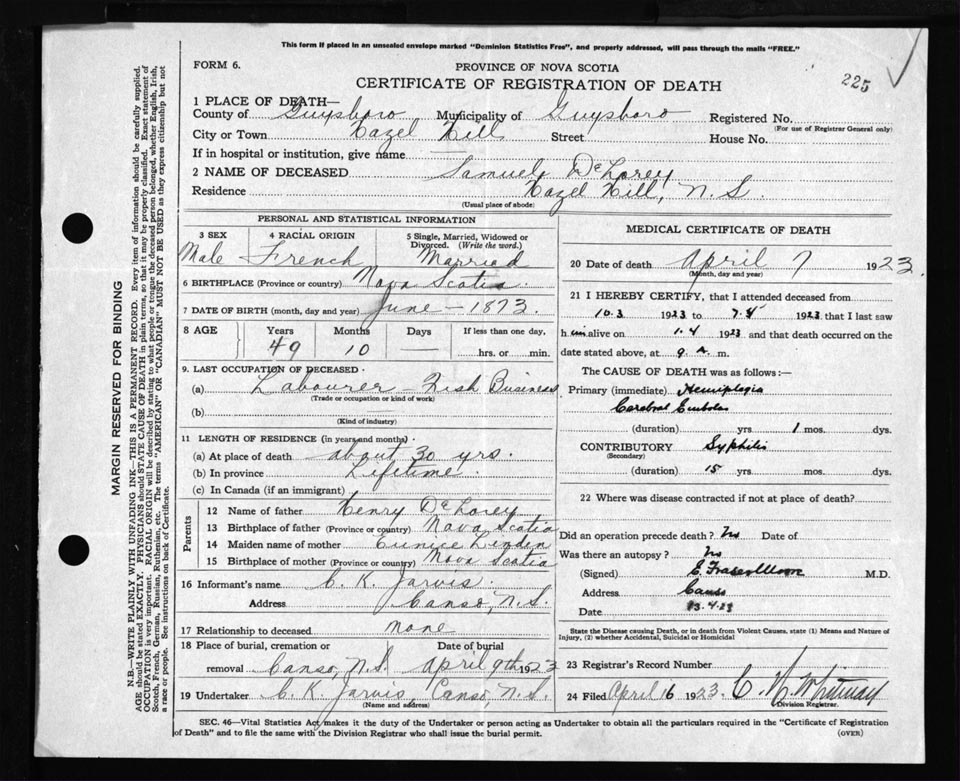 This form if placed in an unsealed envelope marked "Dominion Statistics Free", and properly addressed, will pass through the mails "FREE."
FORM 6.
PROVINCE OF NOVA SCOTIA
CERTIFICATE OF REGISTRATION OF DEATH
225
1 PLACE OF DEATH—
County of Guysboro Municipality of Guysboro Registered No.
(For use of Registrar General only)
City or Town Hazel Hill Street House No.
If in hospital or institution, give name —
2 NAME OF DECEASED Samuel DeLorey
Residence Hazel Hill, N.S.
(Usual place of abode)
PERSONAL AND STATISTICAL INFORMATION
3 SEX 4 RACIAL ORIGIN 5 Single, Married, Widowed or
Divorced. (Write the word.)
Male French Married
6 BIRTHPLACE (Province or country) Nova Scotia
7 DATE OF BIRTH (month, day and year) June – 1873
8 AGE Years Months Days If less than one day,
49 10 — hrs. or min.
9. LAST OCCUPATION OF DECEASED
(a) Labourer – Fish Business
(Trade or occupation or kind of work)
(b) —
(Kind of industry)
11 LENGTH OF RESIDENCE (in years and months)
(a) At place of death about 30 yrs.
(b) In province Lifetime
(c) In Canada (if an immigrant)
Parents
12 Name of father Henry DeLorey
13 Birthplace of father (Province or country) Nova Scotia
14 Maiden name of mother Eunice Linden
15 Birthplace of mother (Province or country) Nova Scotia
16 Informant's name C. K. Jarvis
Address Canso, N.S.
17 Relationship to deceased none
18 Place of burial, cremation or Date of burial
removal Canso, N.S. April 9th 1923
19 Undertaker C. K. Jarvis, Canso, N.S.
(Name and address)
MEDICAL CERTIFICATE OF DEATH
20 Date of death April 7 1923.
(Month, day and year)
21 I HEREBY CERTIFY, that I attended deceased from
10.3 1923 to 7.4 1923 that I last saw
him alive on 1.4 1923 and that death occurred on the
date stated above, at 9 a. m.
The CAUSE OF DEATH was as follows:—
Primary (immediate) Hemiplegia
Cerebral Embolus
(duration) yrs 1 mos. dys.
CONTRIBUTORY Syphilis
(Secondary)
(duration) 15 yrs. mos. dys.
22 Where was disease contracted if not at place of death?
Did an operation precede death? No Date of
Was there an autopsy? No
(Signed) E. Fraser Moore M.D.
Address Canso
Date 13.4.23
State the Disease causing Death, or in death from Violent Causes, state (1) Means and Nature of
Injury, (2) whether Accidental, Suicidal or Homicidal
23 Registrar's Record Number
24 Filed April 16 1923. C. H. Whitman
Division Registrar.
SEC. 46—Vital Statistics Act makes it the duty of the Undertaker or person acting as Undertaker to obtain all the particulars required in the "Certificate of Registration
of Death" and to file the same with the Division Registrar who shall issue the burial permit. (OVER)
MARGIN RESERVED FOR BINDING
N.B.—WRITE PLAINLY WITH UNFADING INK—THIS IS A PERMANENT RECORD. Every item of information should be carefully supplied.
AGE should be stated EXACTLY. PHYSICIANS should STATE CAUSE OF DEATH in plain terms, so that it may be properly classified. Exact statement of
OCCUPATION is very important. RACIAL ORIGIN will be described by stating to what people or tongue the deceased person belonged, whether English, Irish,
Scotch, French, German, Russian, Ruthenian, etc. The terms "AMERICAN" OR "CANADIAN" MUST NOT BE USED as they express citizenship but not
a race or people. See instructions on back of Certificate.